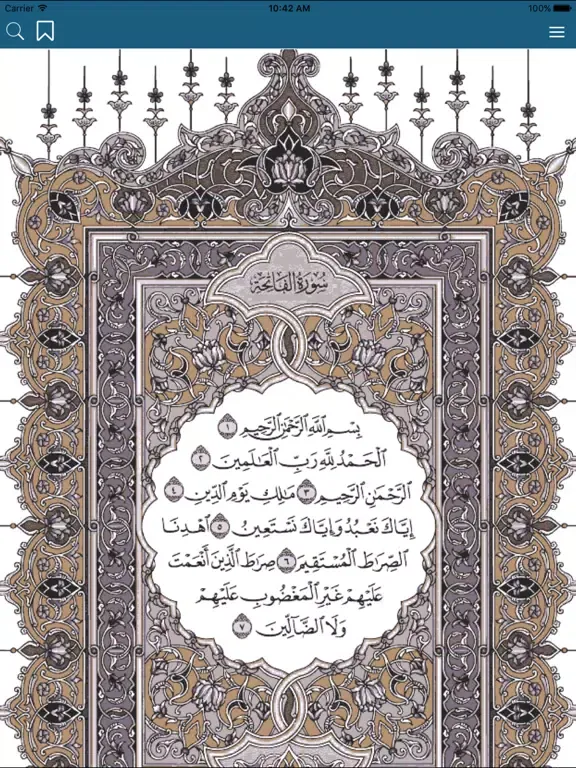 Carrier 10:42 AM 100%
سُورَةُ الفَاتِحَةِ
بِسْمِ اللَّهِ الرَّحْمَٰنِ الرَّحِيمِ ١
الْحَمْدُ لِلَّهِ رَبِّ الْعَالَمِينَ ٢
الرَّحْمَٰنِ الرَّحِيمِ ٣ مَالِكِ يَوْمِ الدِّينِ ٤
إِيَّاكَ نَعْبُدُ وَإِيَّاكَ نَسْتَعِينُ ٥ اهْدِنَا
الصِّرَاطَ الْمُسْتَقِيمَ ٦ صِرَاطَ الَّذِينَ أَنْعَمْتَ
عَلَيْهِمْ غَيْرِ الْمَغْضُوبِ عَلَيْهِمْ
وَلَا الضَّالِّينَ ٧